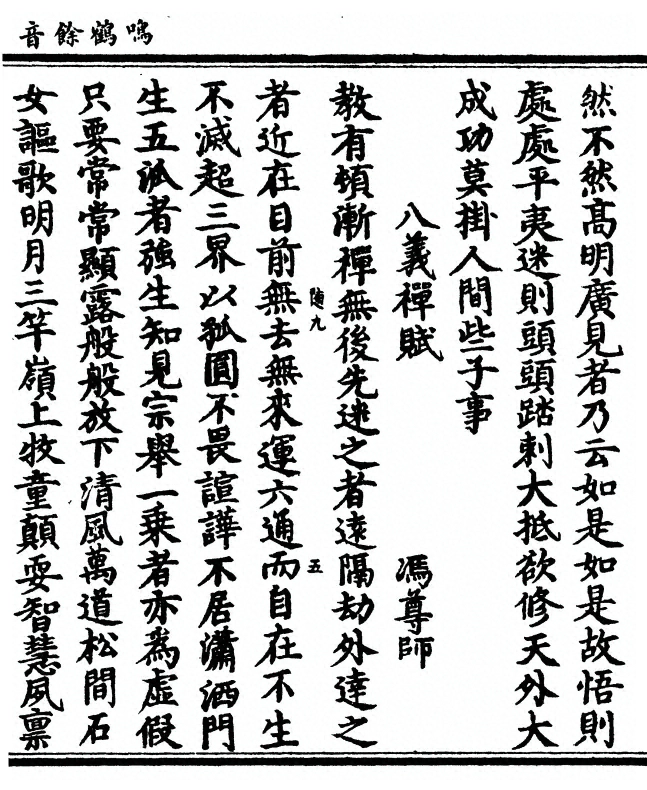 鳴鶴餘音
然不然髙明廣見者乃云如是如是故悟則
處處平夷迷則頭頭踏刺大抵欲修天外大
成功莫掛人間些子事
八義禪賦　馮尊師
教有頓漸禪無後先迷之者遠隔劫外達之
隨九　五
者近在目前無去無來運六通而自在不生
不滅超三界以孤圓不畏諠譁不居瀟洒門
生五泒者強生知見宗舉一乘者亦爲虛假
只要常常顯露般般放下清風萬道松間石
女謳歌明月三竿嶺上牧童顛耍智慧夙禀